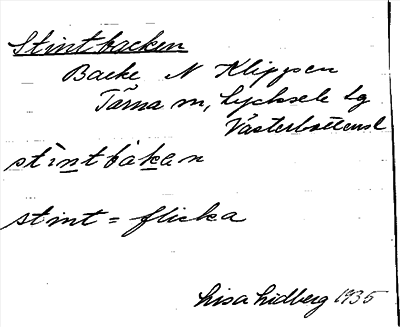 Stintbacken
Backe N Klippen
Tärna sn, Lycksele lg
Västerbottens l
stìntbákan
stint = flicka
Lisa Lidberg 1935